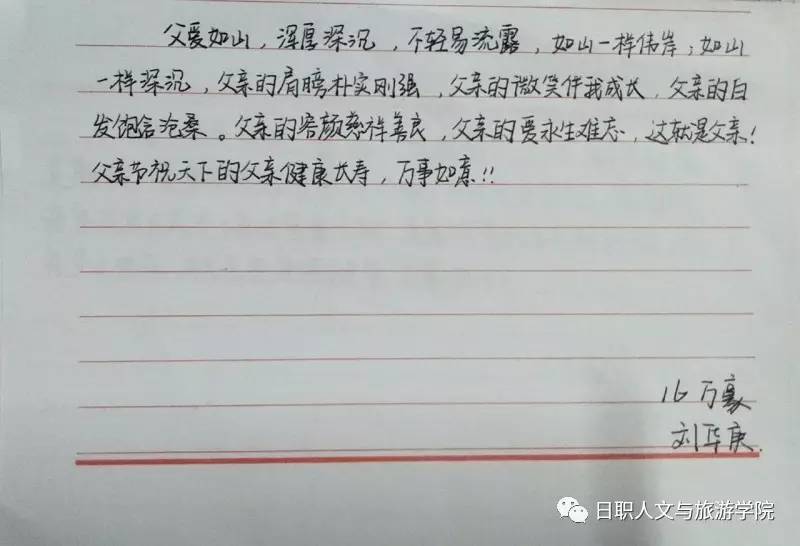 父爱如山，浑厚深沉，不轻易流露，如山一样伟岸；如山
一样深沉，父亲的肩膀朴实刚强，父亲的微笑伴我成长，父亲的白
发饱含沧桑。父亲的容颜慈祥善良，父亲的爱永生难忘，这就是父亲！
父亲节祝天下的父亲健康长寿，万事如意！！
16万豪
刘华庚
日职人文与旅游学院